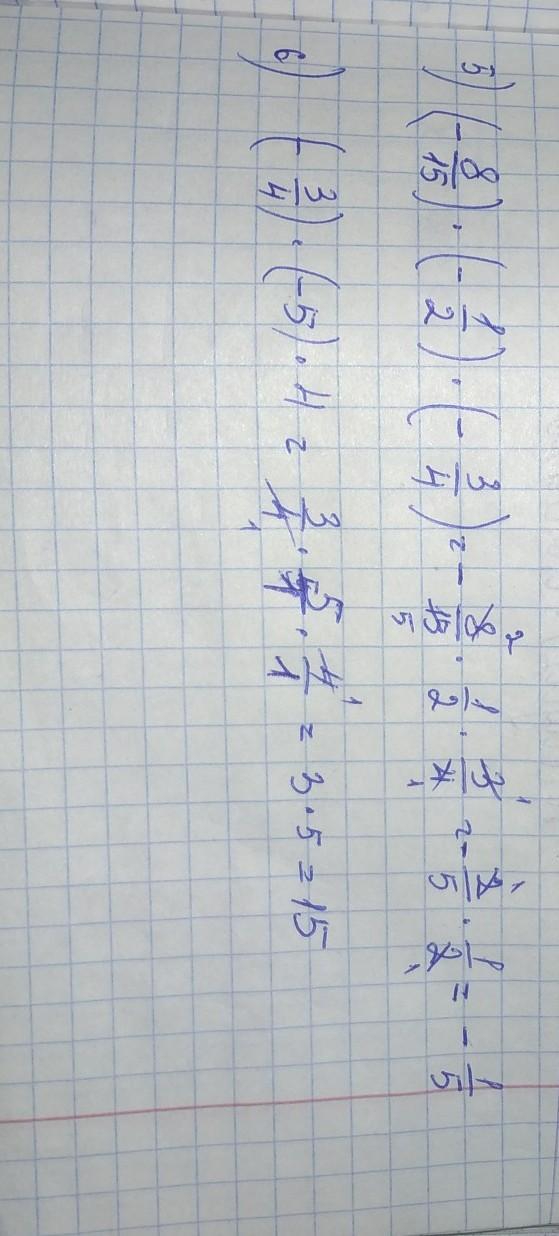 5) (-8/15) · (-1/2) · (-3/4) = - 8²/15₅ · 1/2 · 3¹/4₁ = - 2¹/5 · 1/2₁ = - 1/5
6) (-3/4) · (-5) · 4 = 3/4₁ · 5/1 · 4¹/1 = 3 · 5 = 15